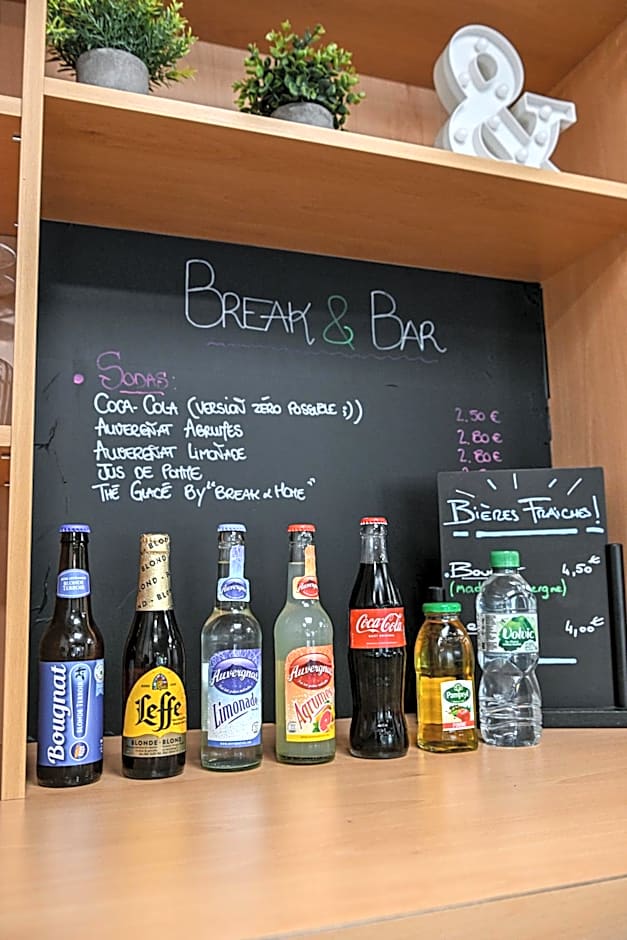 &
BREAK & BAR
SODAS:
COCA-COLA (VERSION ZÉRO POSSIBLE ;)) 2,50 €
AUVERGNAT AGRUMES 2,80 €
AUVERGNAT LIMONADE 2,80 €
JUS DE POMME
THÉ GLACÉ BY "BREAK & HOME"
BIÈRES FRAÎCHES!
4,50€
4,00€
BLONDE TERROIR
Bougnat
BLONDE TERROIR
BLONDE
Leffe
BLONDE·BLOND
Auvergnat
Limonade
Auvergnat
Agrumes
Coca-Cola
Pampryl
Volvic